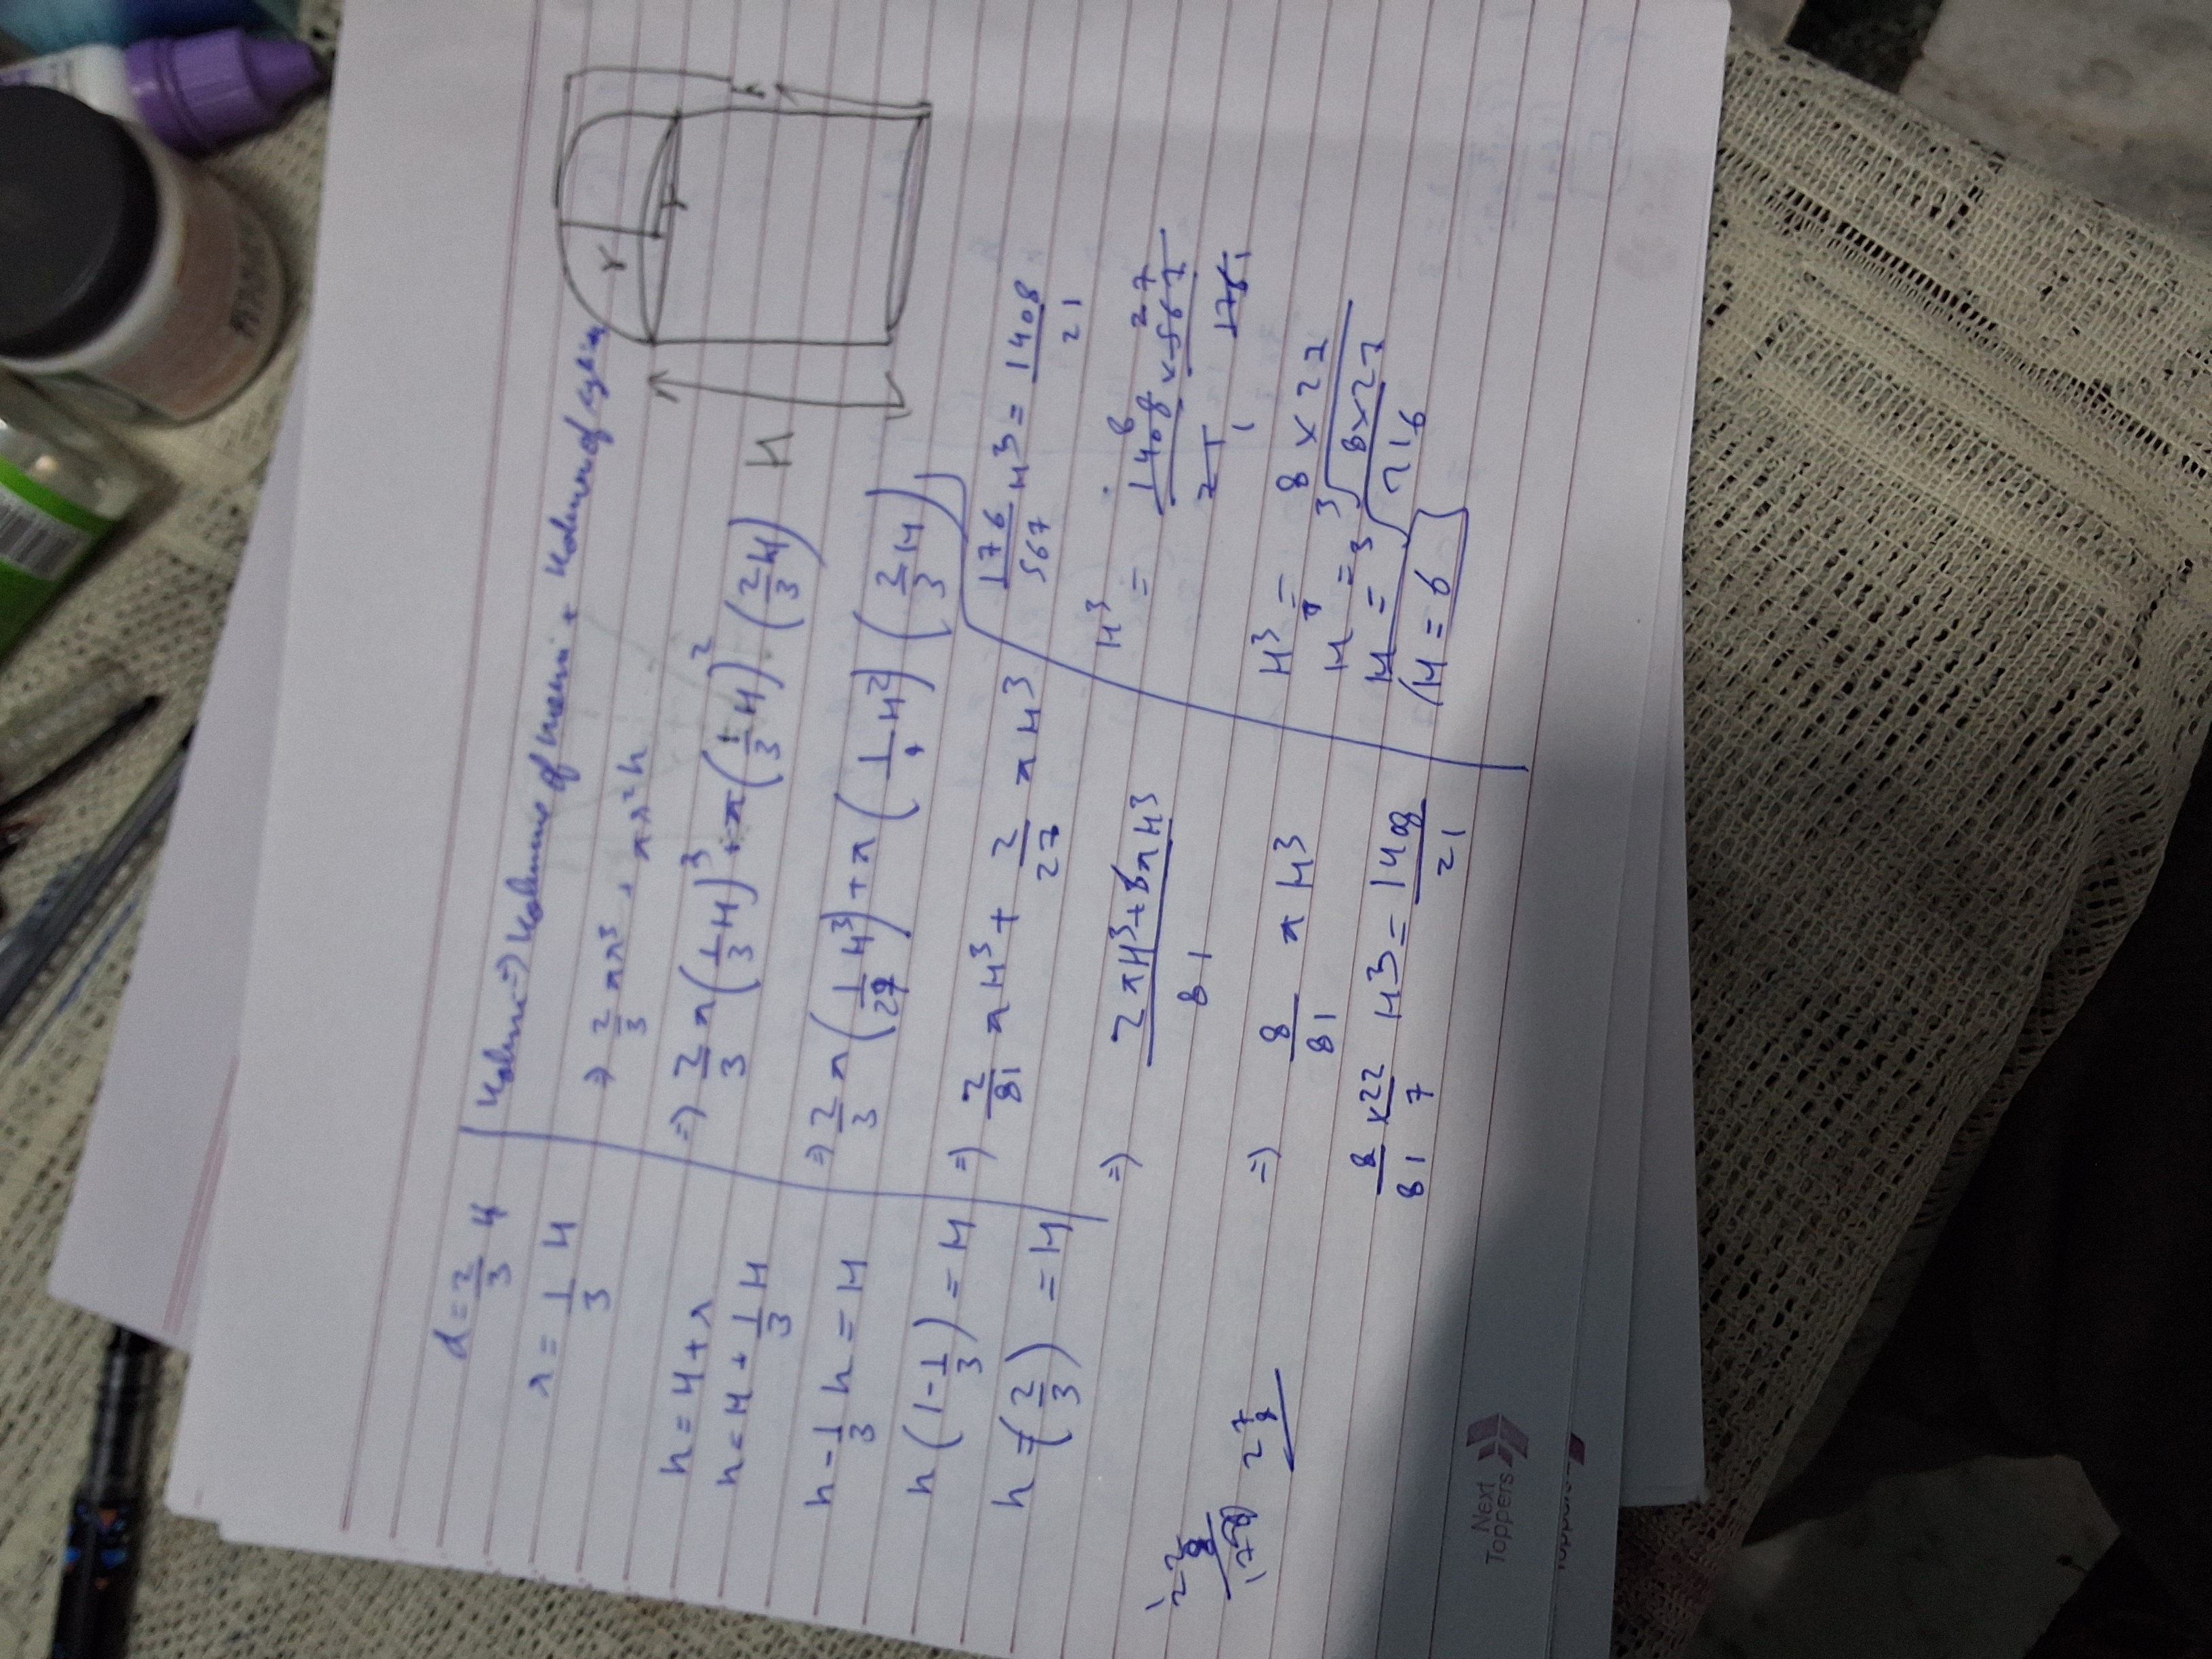 d = 2/3 H
r = 1/3 H
h = H + r
h = H + 1/3 H
h - 1/3 h = H
h (1 - 1/3) = H
h = (2/3) = H
Volume => Volume of hemi + Volume of
=> 2/3 πr³ + πr²h
=> 2/3 π (1/3 H)³ + π (1/3 H)² (2/3 H)
=> 2/3 π (1/27 H³) + π (1/9 H²) (2/3 H)
=> 2/81 πH³ + 2/27 πH³
=> 2πH³ + 6πH³ / 81
=> 8/81 πH³
8/81 × 22/7 H³ = 1408/21
r
r
h
H
176/567 H³ = 1408/21
H³ = 1408 × 567 / 21 176
8 27
1 1
H³ = 8 × 27
H = ³√8 × 27
H = ³√216
H = 6
22
8
176
27
8
Next
Toppers